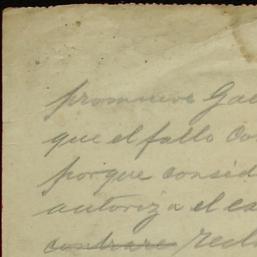 promueve Ga
que el fallo Co
porque consid
autoriza el ca
contrare recl